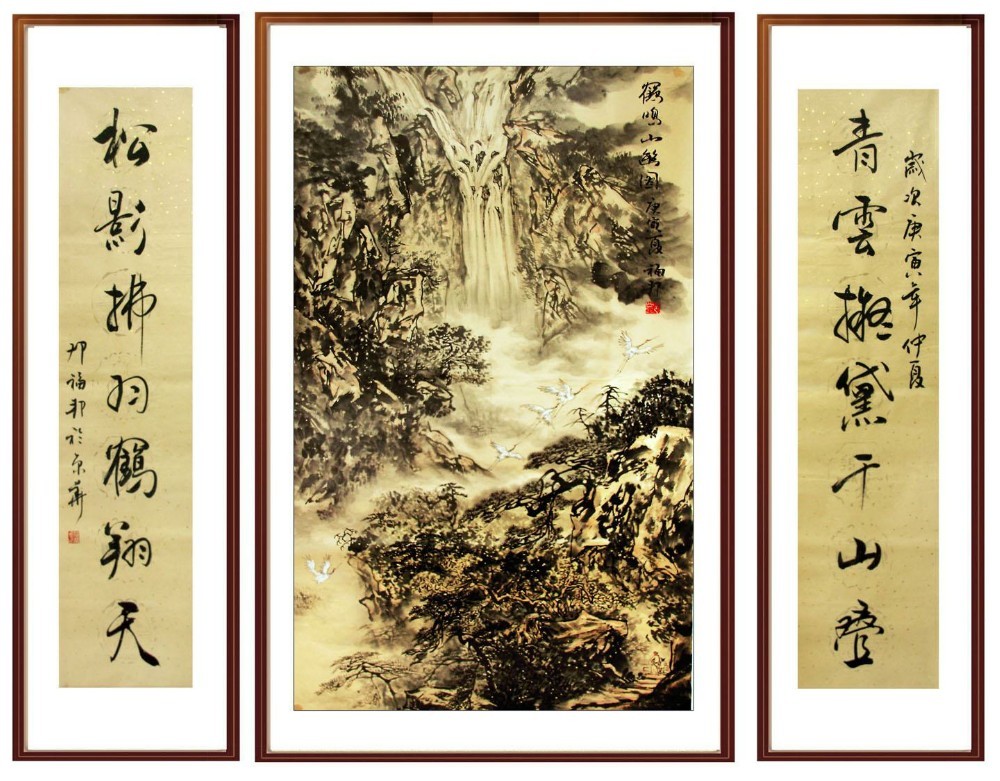 歲次庚寅年仲夏
青雲擬黛千山疊
鶴鳴山幽圖 庚寅夏福邦
松影拂羽鶴翔天
福邦於京華